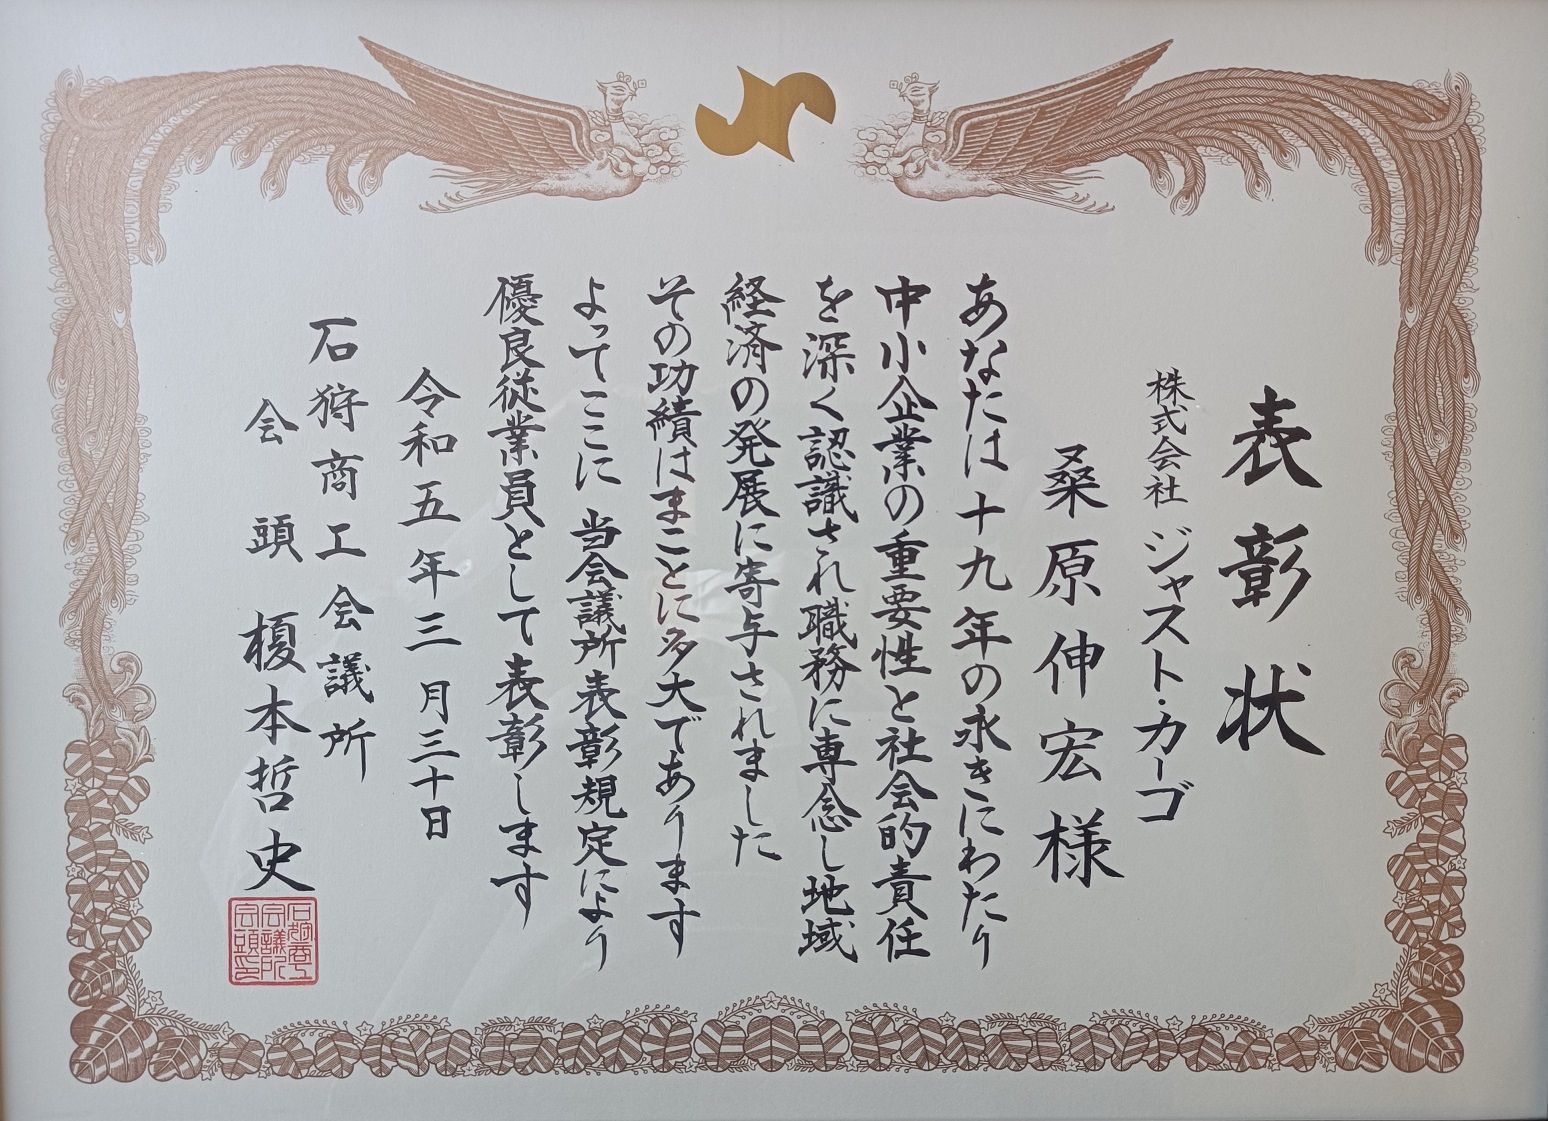 表彰状
株式会社 ジャスト・カーゴ
桑原伸宏様
あなたは十九年の永きにわたり
中小企業の重要性と社会的責任
を深く認識され職務に専念し地域
経済の発展に寄与されました
その功績はまことに多大であります
よってここに 当会議所表彰規定により
優良従業員として表彰します
令和五年三月三十日
石狩商工会議所
会頭 榎本哲史
石狩商工
会議所
会頭印